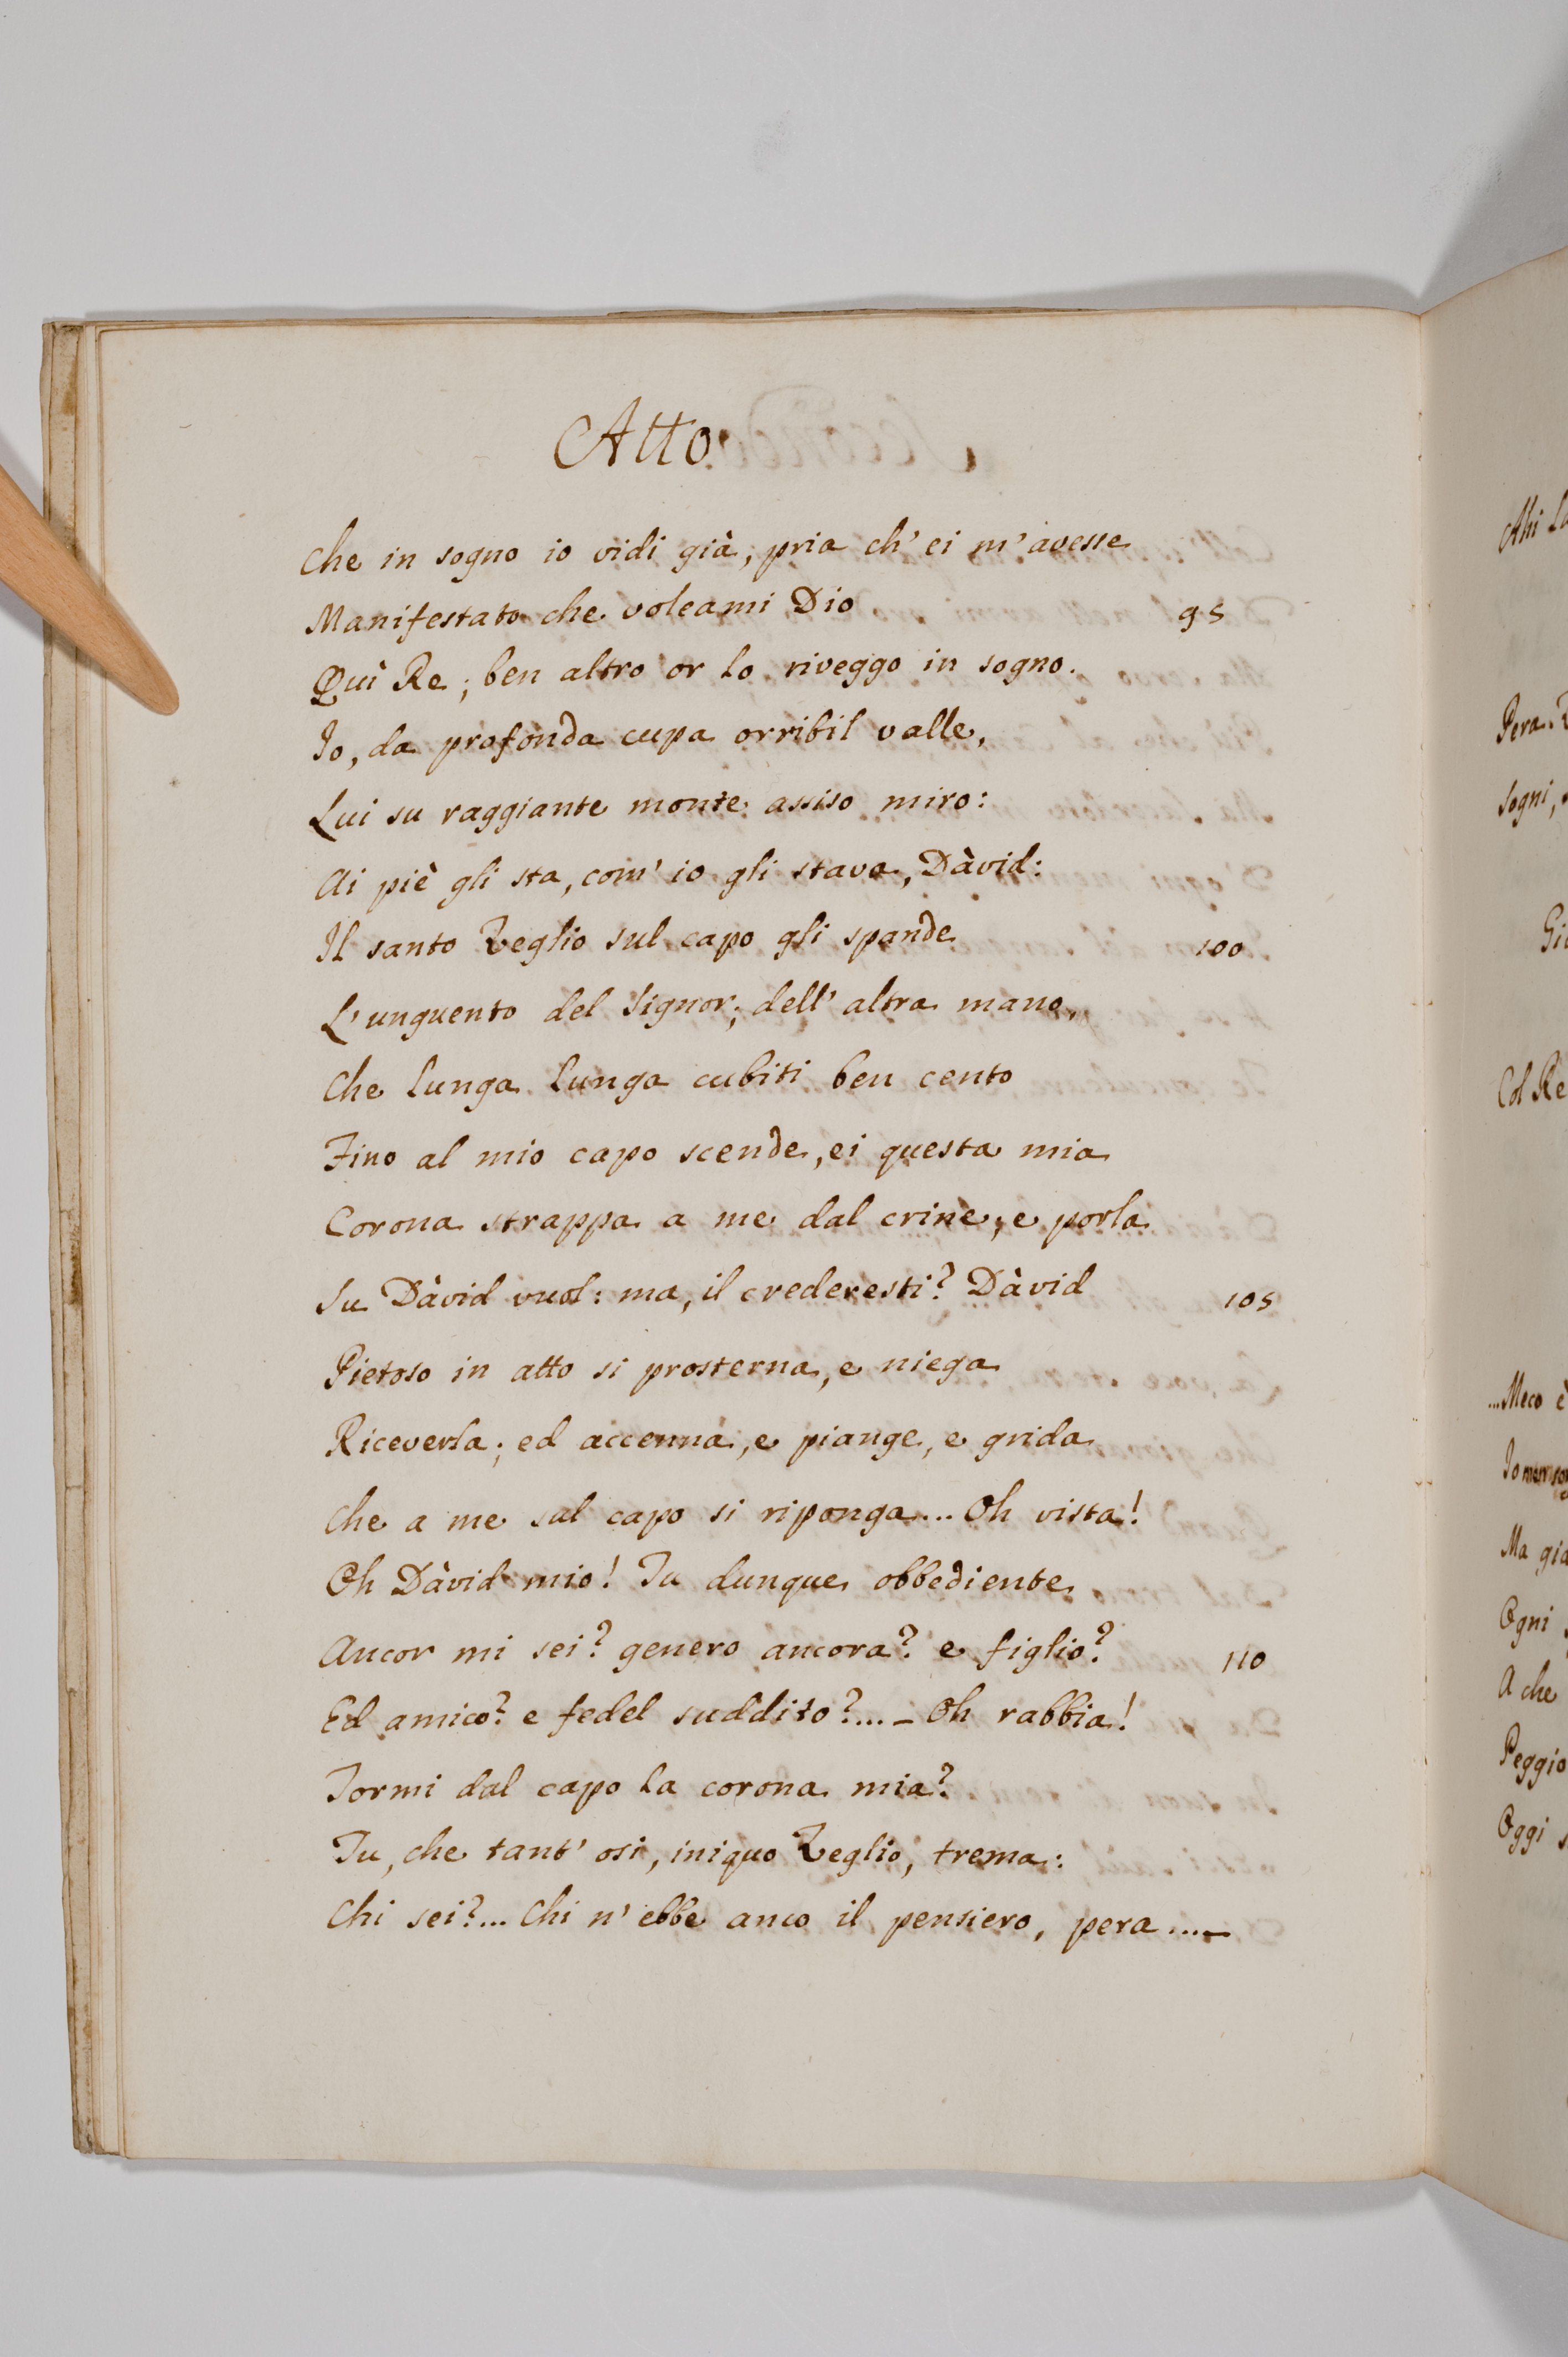 Atto
Che in sogno io vidi già, pria ch' ei m' avesse
Manifestato che voleami Dio 95
Quì Re; ben altro or lo riveggo in sogno.
Io, da profonda cupa orribil valle,
Lui su raggiante monte assiso miro:
Ai piè gli sta, com' io gli stava, Dàvid:
Il santo Veglio sul capo gli spande 100
L'unguento del Signor; dell' altra mano,
Che lunga lunga cubiti ben cento
Fino al mio capo scende, ei questa mia
Corona strappa a me dal crine; e porla
Su Dàvid vuol: ma, il crederesti? Dàvid 105
Pietoso in atto si prosterna, e niega
Riceverla; ed accenna, e piange, e grida
Che a me sul capo si riponga... Oh vista!
Oh Dàvid mio! Tu dunque obbediente
Ancor mi sei? genero ancora? e figlio? 110
Ed amico? e fedel suddito?... _ Oh rabbia!
Tormi dal capo la corona mia?
Tu, che tant' osi, iniquo Veglio, trema:
Chi sei?... Chi n' ebbe anco il pensiero, pera...._
Ahi
Pera.
Sogni,
Col Re
...Meco è
Ma già
Ogni
A che
Peggio
Oggi